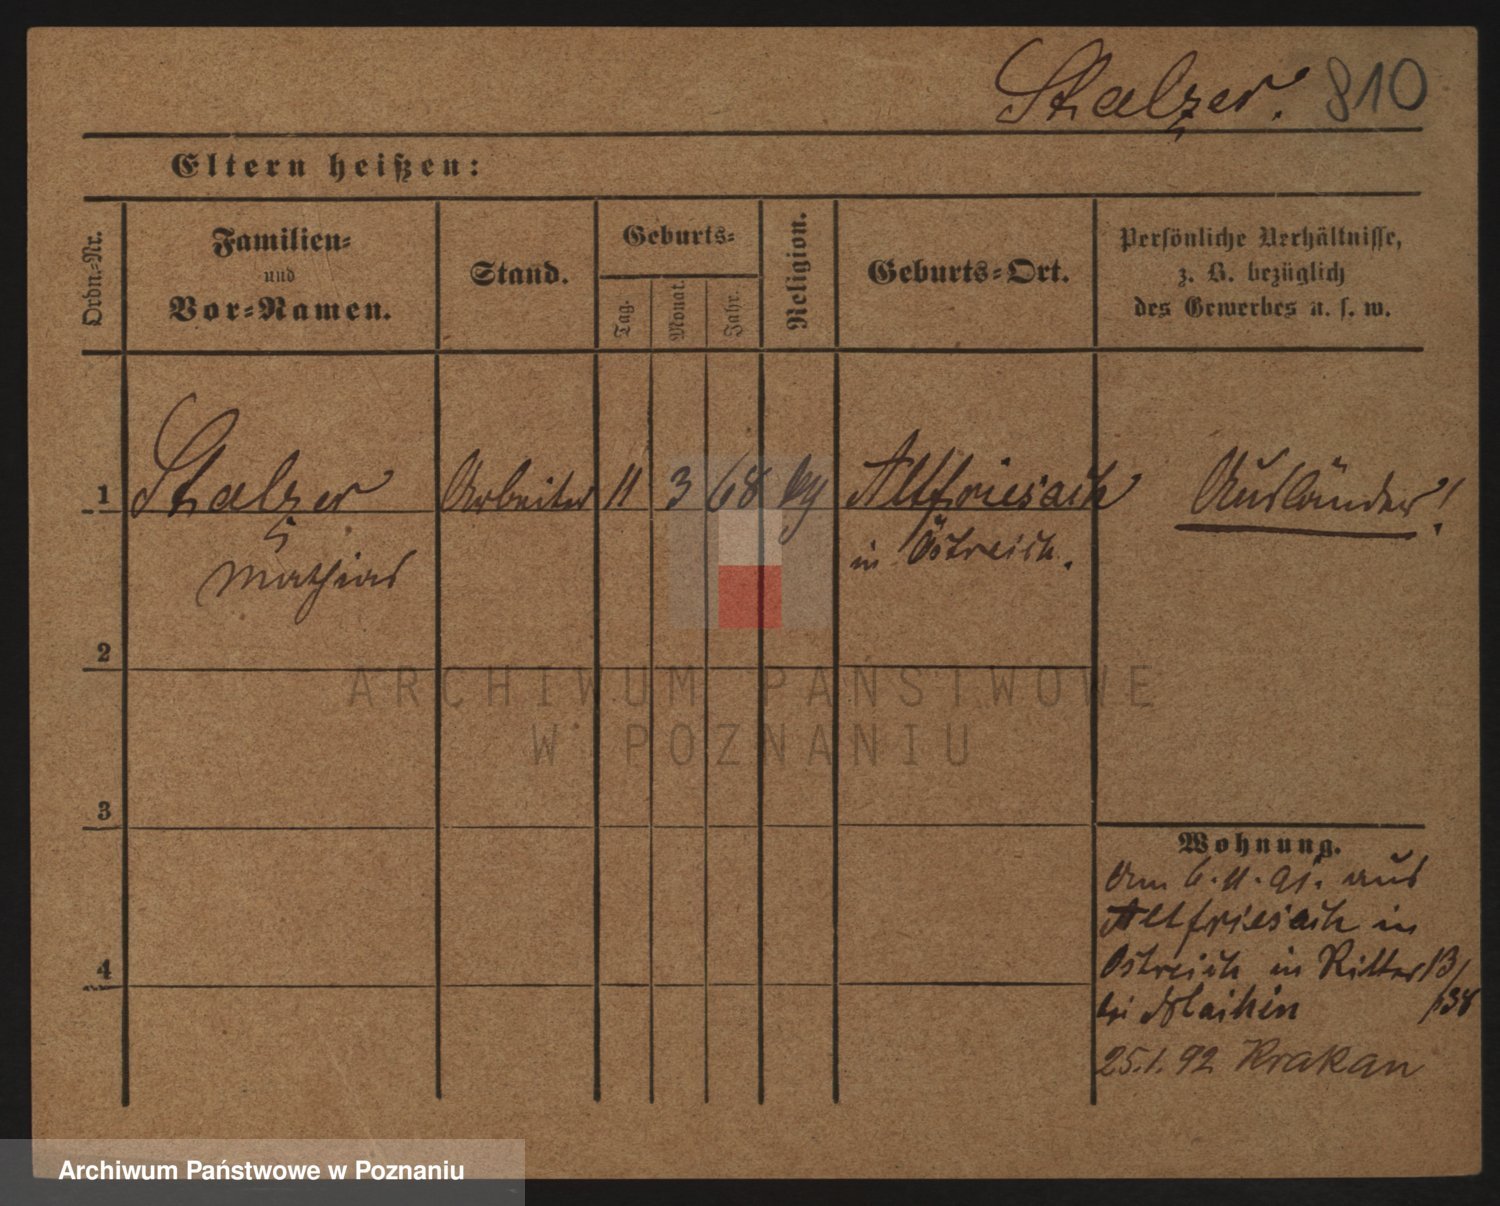 Stalzer. 810
Eltern heißen:
Ordn.=Nr.
Familien=
und
Vor=Namen.
Stand.
Geburts=
Tag.
Monat.
Jahr.
Religion.
Geburts=Ort.
Persönliche Verhältnisse,
z. B. bezüglich
des Gewerbes u. s. w.
1 Stalzer Arbeiter 11 3 68 kg Altfriesach Ausländer!
Mathias in Östreich.
2
3
4
Wohnung.
Am 6.11.91. aus
Altfriesach in
Östreich in Ritter 13/
bei /38
25.1.92 Krakau
ARCHIWUM PAŃSTWOWE
W POZNANIU
Archiwum Państwowe w Poznaniu